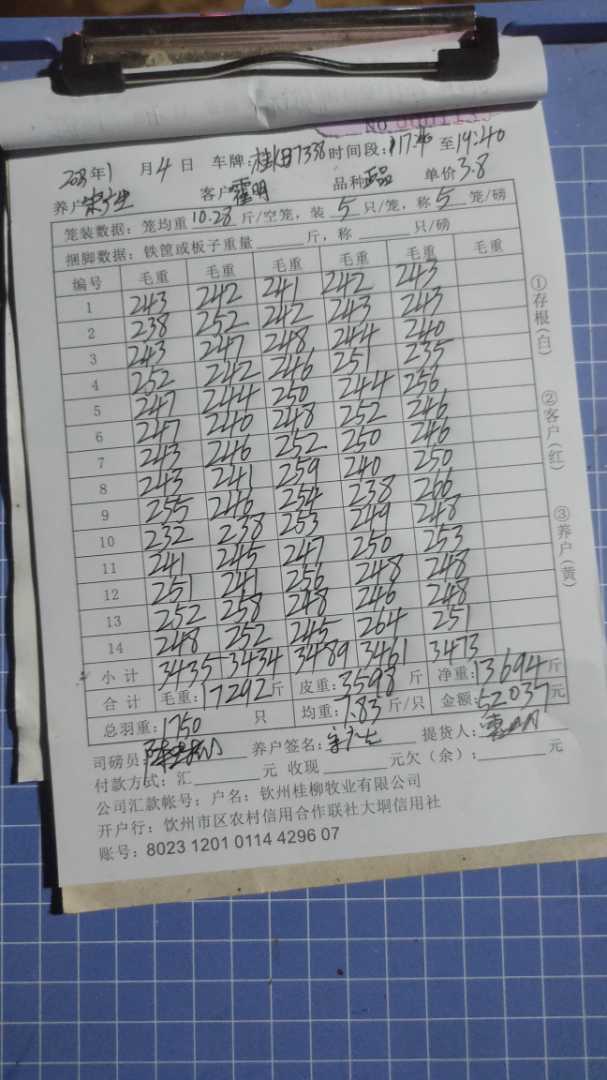 No
2023年1月4日 车牌:桂 7338 时间段: 至19:40
养户 客户霍明 品种正品 单价3.8
笼装数据:笼均重10.28斤/空笼,装5只/笼,称5笼/磅
捆脚数据:铁筐或板子重量 斤,称 只/磅
编号 毛重 毛重 毛重 毛重 毛重 毛重
1 243 242 241 242 243
2 238 252 242 243 243
3 243 247 248 244 240
4 252 242 246 251 235
5 247 244 250 244 256
6 247 240 248 252 246
7 243 246 252 250 246
8 243 241 259 240 250
9 255 246 254 238 266
10 232 238 253 249 248
11 241 245 247 250 253
12 251 241 256 248 248
13 252 258 248 246 248
14 248 252 245 264 251
小计 3435 3434 3489 3461 3473
合计 毛重:17292斤 皮重:3598斤 净重:13694斤
总羽重:1750只 均重:7.83斤/只 金额:52037元
司磅员: 养户签名: 提货人:
付款方式:汇 元 收现 元欠(余): 元
公司汇款帐号:户名:钦州桂柳牧业有限公司
开户行:钦州市区农村信用合作联社大垌信用社
账号:8023 1201 0114 4296 07
①存根(白)
②客户(红)
③养户(黄)